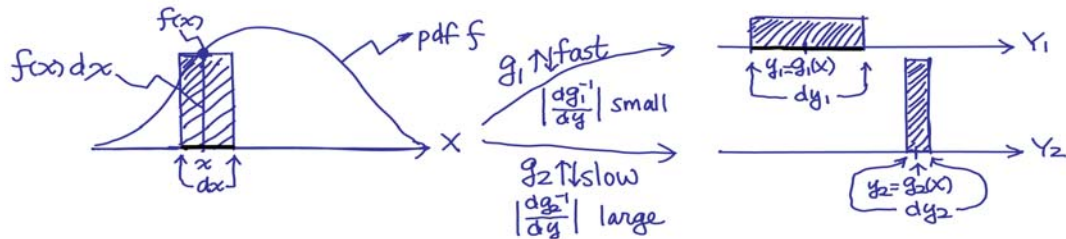 f(x)
pdf f
f(x) dx
x
dx
X
g₁ ↑↓ fast
|dg₁⁻¹/dy| small
g₂ ↑↓ slow
|dg₂⁻¹/dy| large
y₁=g₁(x)
dy₁
Y₁
y₂=g₂(x)
dy₂
Y₂